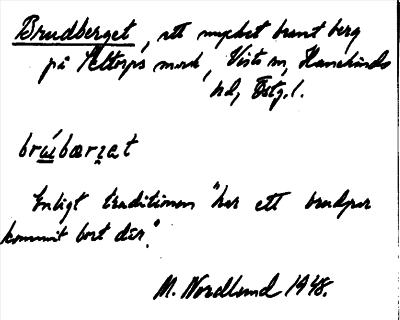 Brudberget, ett mycket brant berg
på Åttorps mark, Vists sn, Hanekinds
hd, Östg.l.
brúibærꭓat
Enligt traditionen "har ett brudpar
kommit bort där".
M. Nordlund 1948.